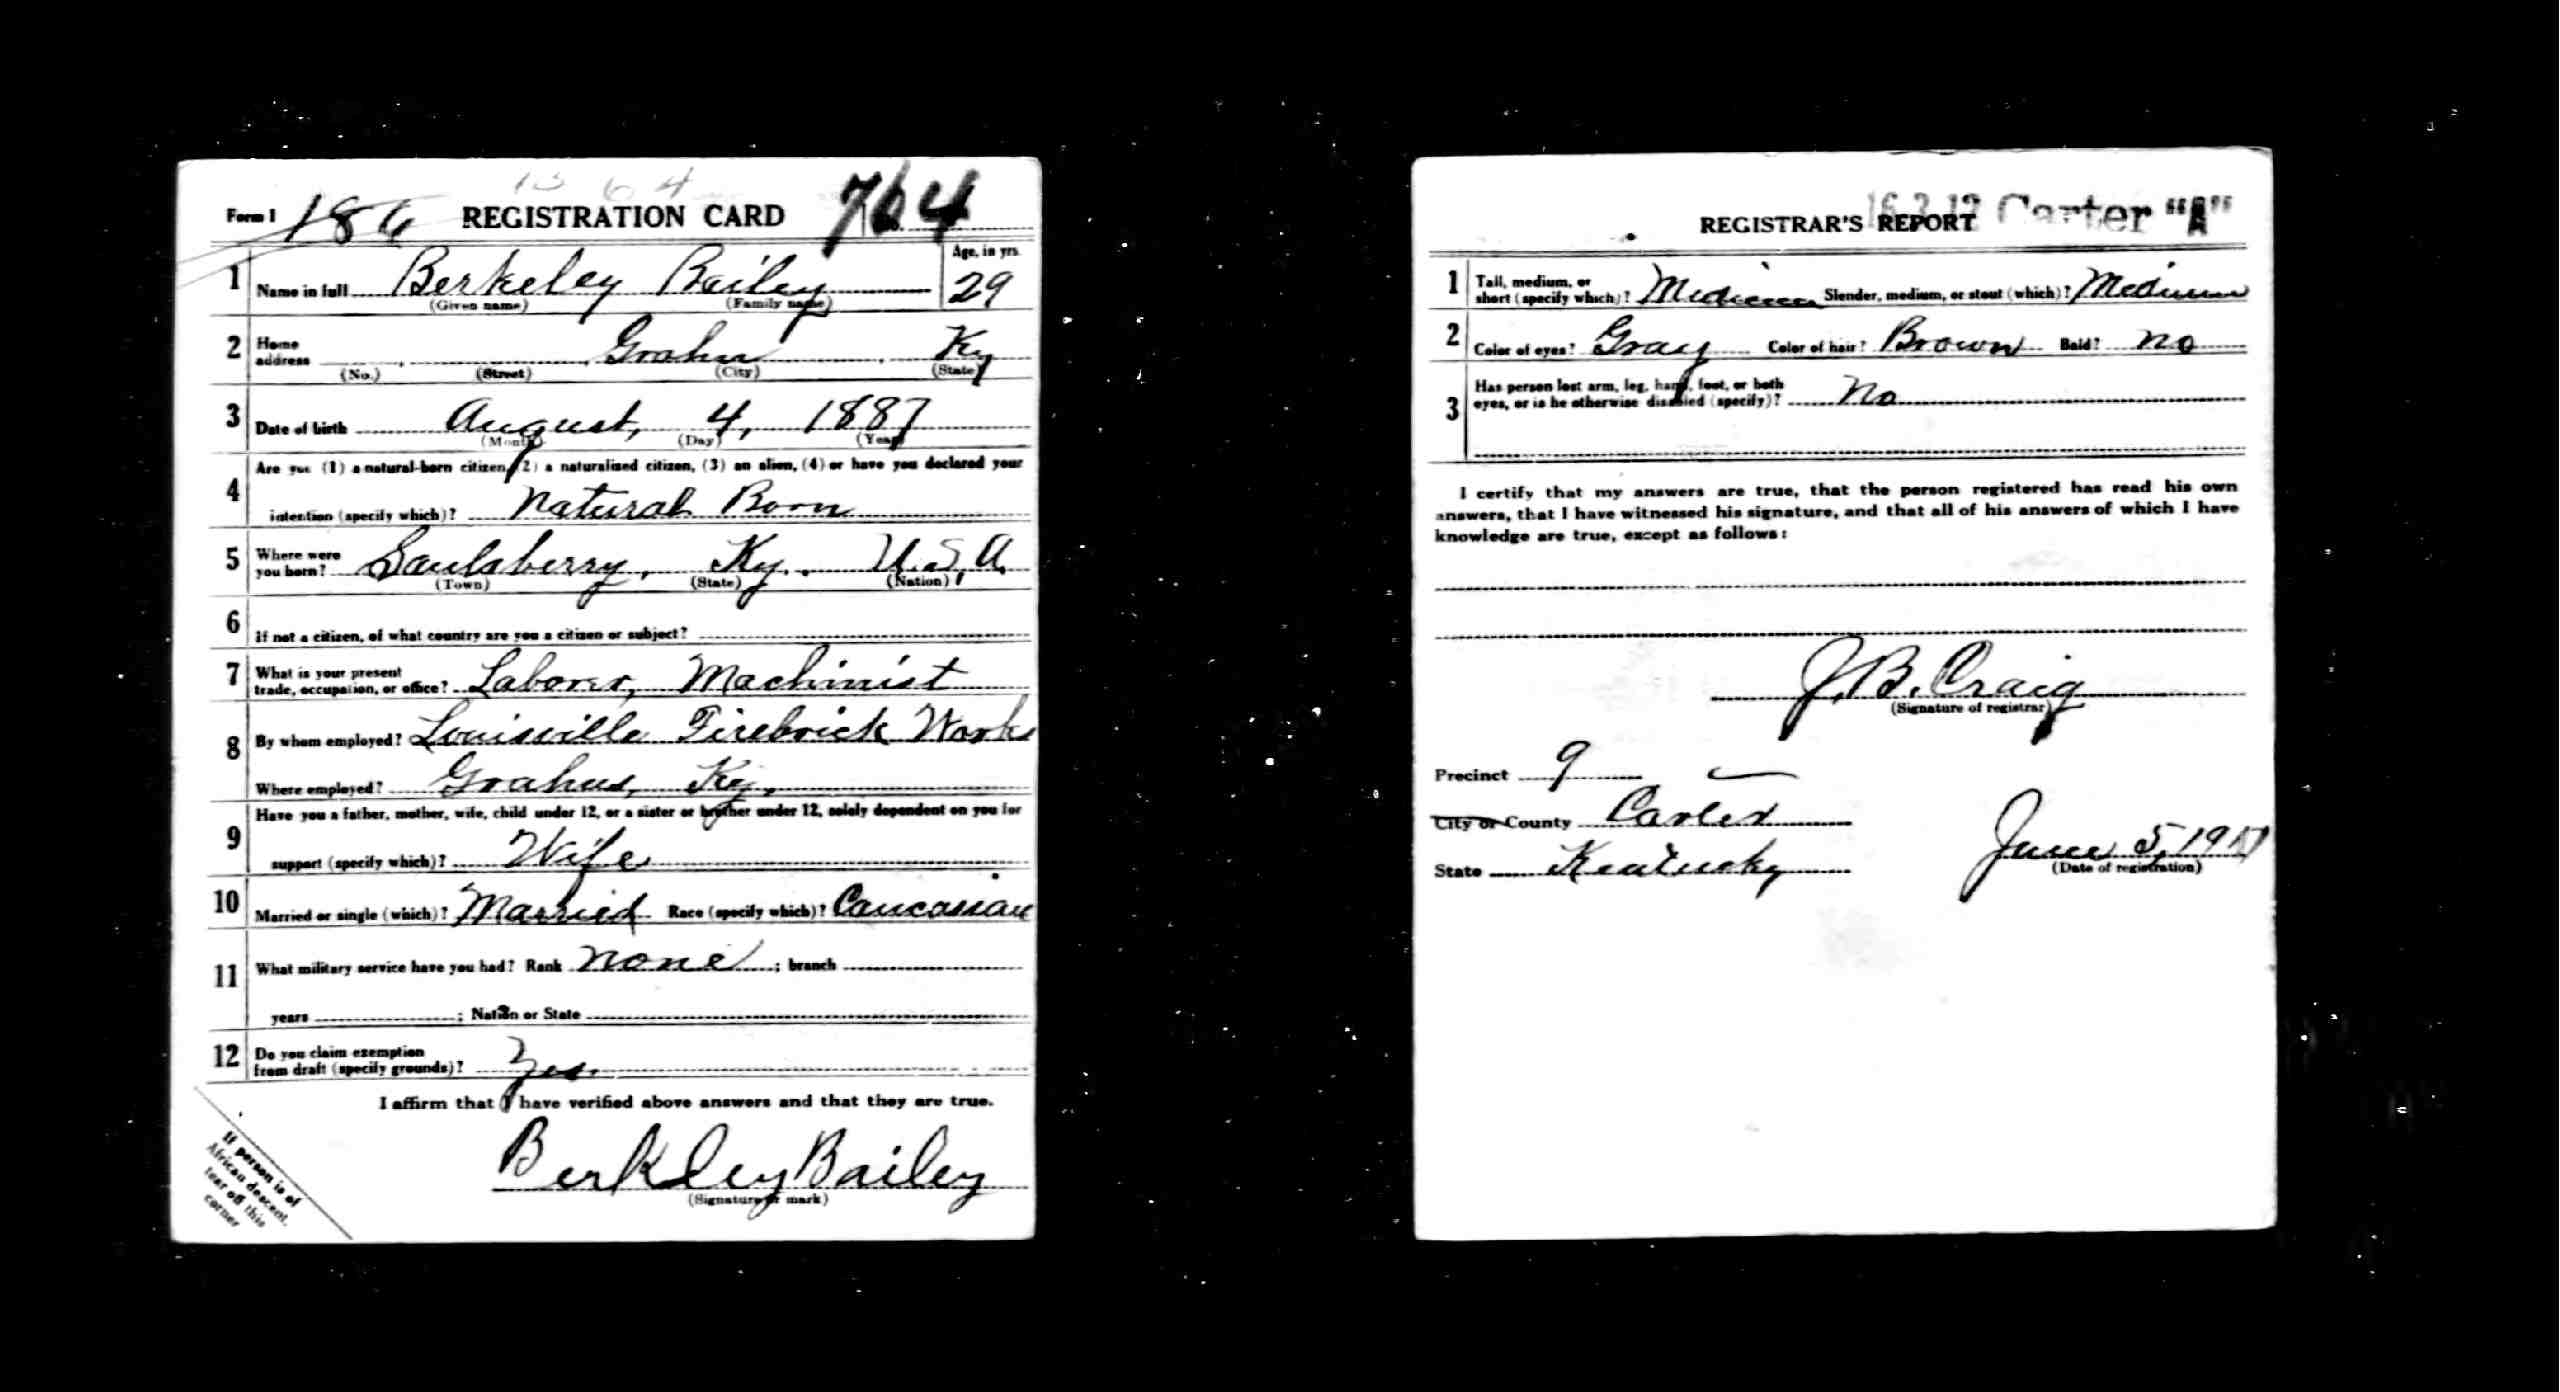 1564
Form 1 186 REGISTRATION CARD 764
1 Name in full Berkeley Bailey Age, in yrs. 29
(Given name) (Family name)
2 Home address Grahn Ky
(No.) (Street) (City) (State)
3 Date of birth August, 4, 1887
(Month) (Day) (Year)
4 Are you (1) a natural-born citizen, (2) a naturalized citizen, (3) an alien, (4) or have you declared your
intention (specify which)? Natural Born
5 Where were you born? Saulsberry, Ky. U.S.A.
(Town) (State) (Nation)
6 If not a citizen, of what country are you a citizen or subject?
7 What is your present
trade, occupation, or office? Laborer, Machinist
8 By whom employed? Louisville Firebrick Works
Where employed? Grahn, Ky.
9 Have you a father, mother, wife, child under 12, or a sister or brother under 12, solely dependent on you for
support (specify which)? Wife
10 Married or single (which)? Married Race (specify which)? Caucasian
11 What military service have you had? Rank None ; branch
years ; Nation or State
12 Do you claim exemption
from draft (specify grounds)? Yes.
I affirm that I have verified above answers and that they are true.
Berkley Bailey
(Signature or mark)
If person is of
African descent,
tear off this
corner
REGISTRAR'S REPORT Carter "A"
1 Tall, medium, or
short (specify which)? Medium Slender, medium, or stout (which)? Medium
2 Color of eyes? Gray Color of hair? Brown Bald? No
3 Has person lost arm, leg, hand, foot, or both
eyes, or is he otherwise disabled (specify)? No
I certify that my answers are true, that the person registered has read his own
answers, that I have witnessed his signature, and that all of his answers of which I have
knowledge are true, except as follows:
J. B. Craig
(Signature of registrar)
Precinct 9
City or County Carter
State Kentucky June 5, 1917
(Date of registration)